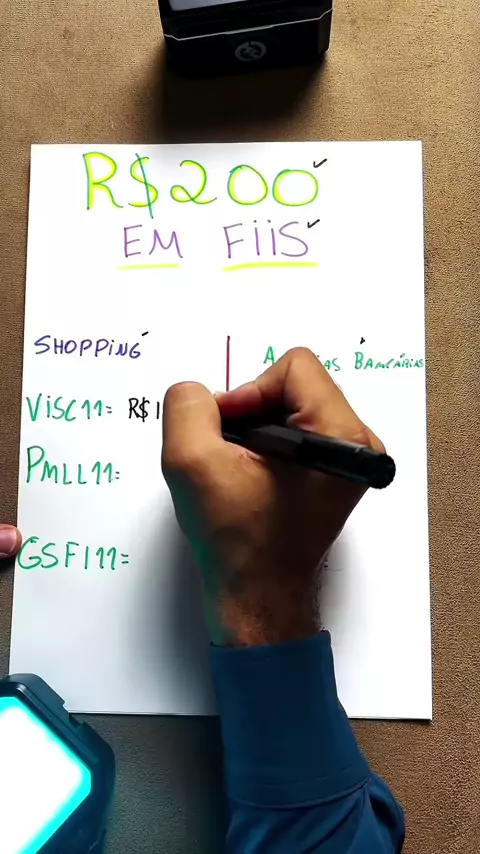 R$200
EM FIIS
SHOPPING
BANCÁRIAS
VISC11= R$1
PMLL11=
GSFI11=